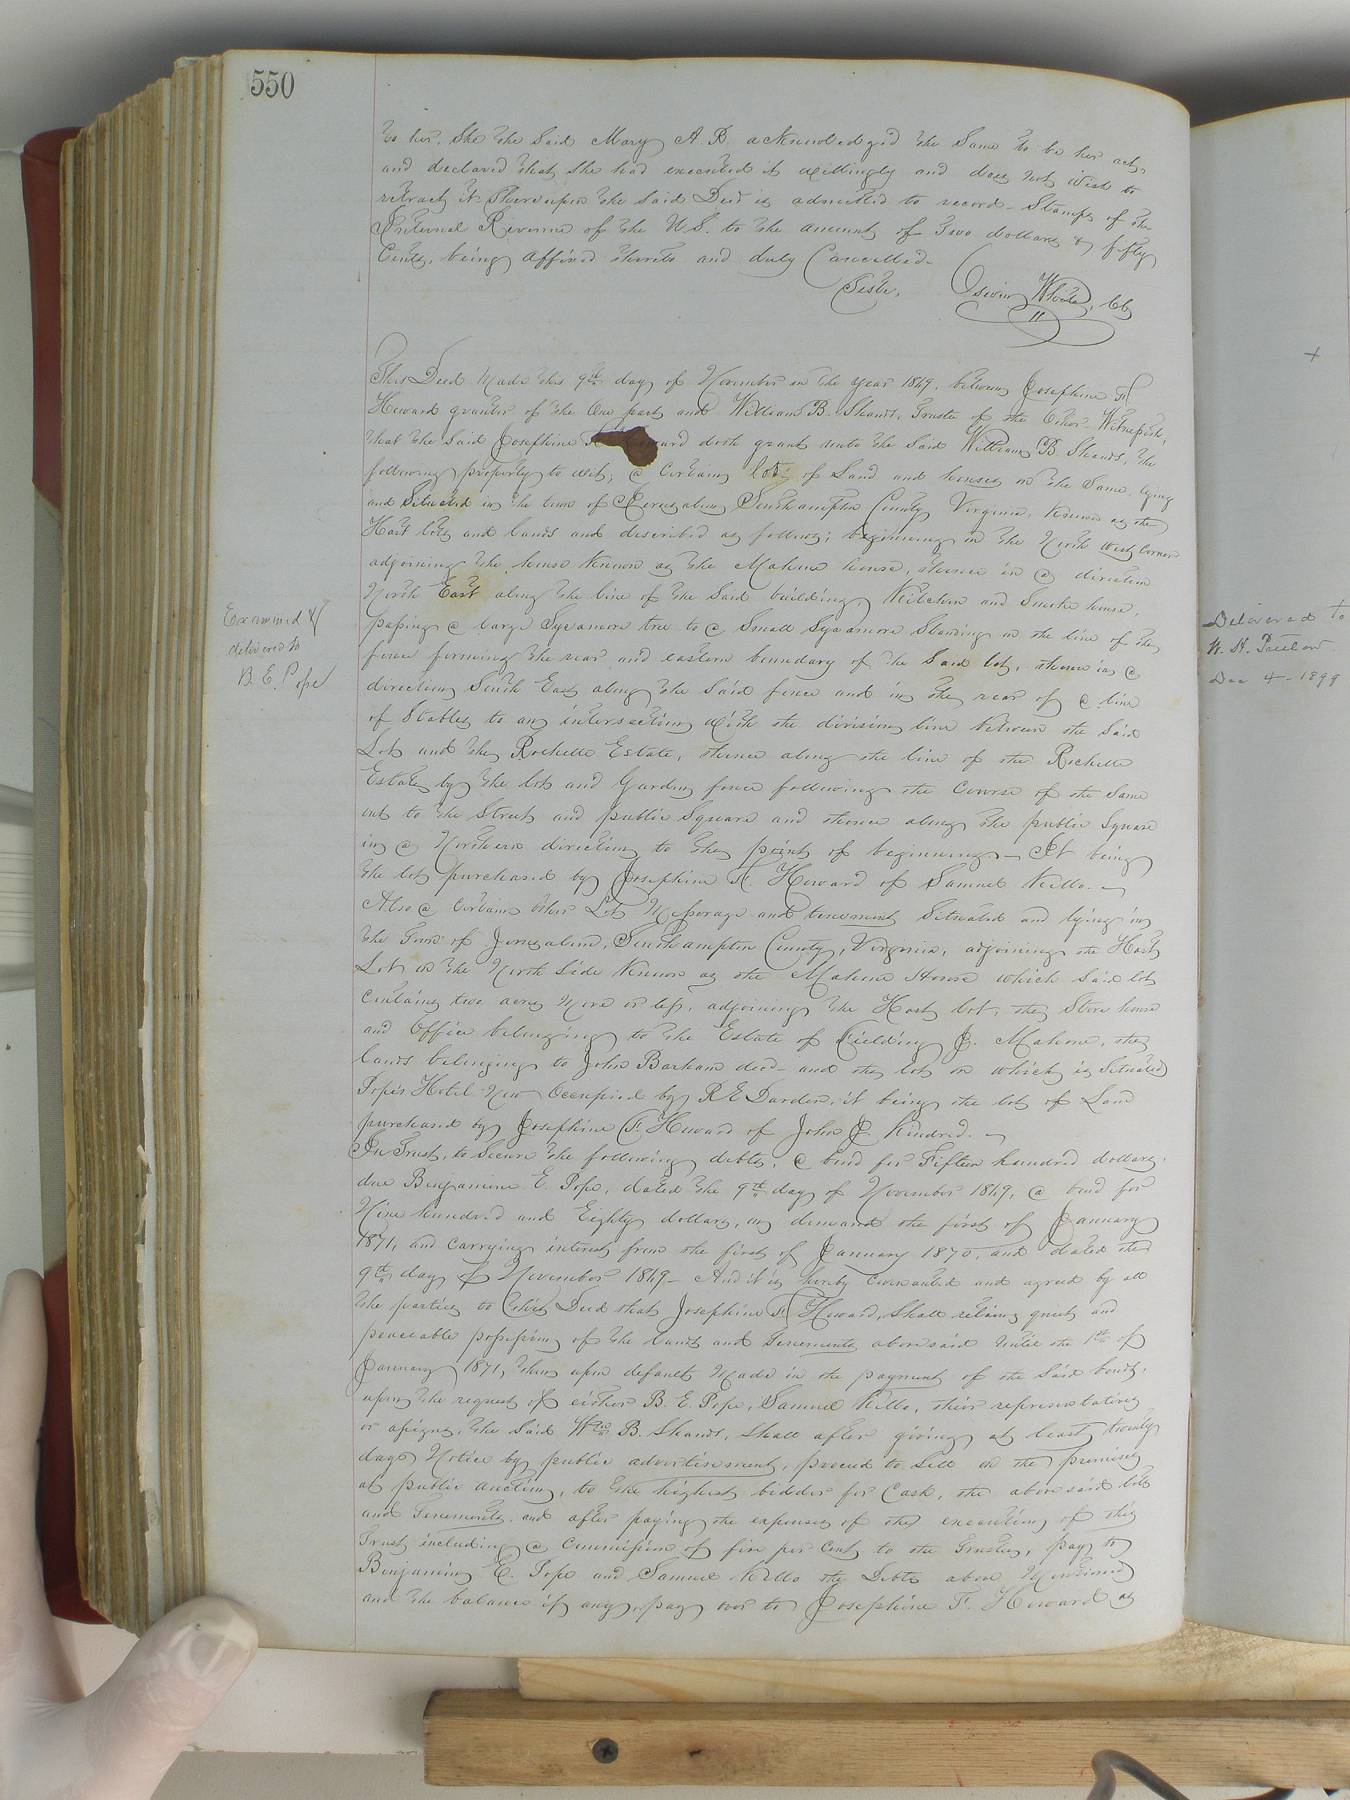 550
to her. She the Said Mary A. B. acknowledged the Same to be her act,
and declared that she had executed it willingly and does not wish to
retract it. Thereupon the Said Deed is admitted to record. Stamps of the
Internal Revenue of the U.S. to the amount of Two dollars & fifty
Cents, being affixed thereto and duly Cancelled.
Teste,
White, Clk
This Deed Made this 9th day of November in the year 1869, between Josephine F.
Howard grantor of the One part and William B. Shands, Trustee of the Other Witnesseth,
that the Said Josephine F. Howard doth grant unto the Said William B. Shands, the
following property to wit, a Certain lot of Land and houses on the Same lying
and Situated in the town of Jerusalem Southampton County Virginia, Known as the
Hart lots and lands and described as follows; beginning in the North West Corner
adjoining the house Known as the Mahone house, thence in a direction
North East along the line of the Said building, Kitchen and Smoke house,
passing a large Sycamore tree to a Small Sycamore Standing on the line of the
fence forming the rear and eastern boundary of the Said lot, thence in a
direction South East along the Said fence and in the rear of a line
of Stables to an intersection with the division line between the Said
Lot and the Rochelle Estate, thence along the line of the Rochelle
Estate by the lot and Garden fence following the Course of the Same
out to the Street and public Square and thence along the public Square
in a Northern direction to the point of beginning. It being
the lot purchased by Josephine F. Howard of Samuel Kello.
Also a Certain other Lot Messuage and tenement Situated and lying in
the Town of Jerusalem, Southampton County, Virginia, adjoining the Hart
Lot on the North Side Known as the Mahone House which Said lot
Contains two acres More or less, adjoining the Hart lot, the Store house
and Office belonging to the Estate of Fielding J. Mahone, the
lands belonging to John Barham decd and the lot on which is Situated
Pope's Hotel Now Occupied by R E Darden, it being the lot of Land
purchased by Josephine F. Howard of John J. Kindred.
In Trust, to Secure the following debts, a bond for Fifteen hundred dollars,
due Benjamin E. Pope, dated the 9th day of November 1869, a bond for
Nine hundred and Eighty dollars, on demand the first of January
1871, and Carrying interest from the first of January 1870, and dated the
9th day of November 1869. And it is hereby Covenanted and agreed by all
the parties to this Deed that Josephine F. Howard, Shall retain quiet and
peaceable possession of the lands and Tenements abovesaid Until the 1st of
January 1871, then upon default Made in the payment of the Said bonds,
upon the request of either B. E. Pope, Samuel Kello, their representatives
or assigns, the Said Wm B. Shands, Shall after giving at least twenty
days Notice by public advertisement, proceed to Sell on the premises
at public auction, to the highest bidder for Cash, the abovesaid lots
and Tenements, and after paying the expenses of the execution of this
Trust including a Commission of five per Cent to the Trustee, pay to
Benjamin E. Pope and Samuel Kello the Debts above Mentioned
and the balance if any, pay over to Josephine F. Howard as
Examined &
delivered to
B. E. Pope
Delivered to
Dec 4 - 1899